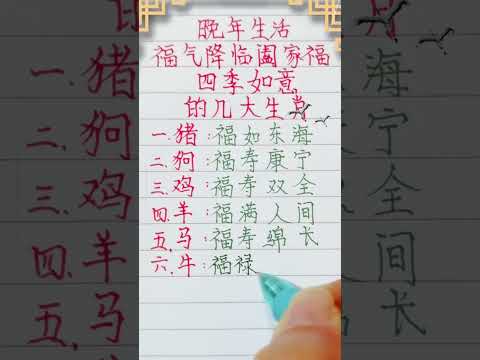 晚年生活
福气降临阖家福
四季如意
的几大生肖
一.猪:福如东海
二.狗:福寿康宁
三.鸡:福寿双全
四.羊:福满人间
五.马:福寿绵长
六.牛:福禄